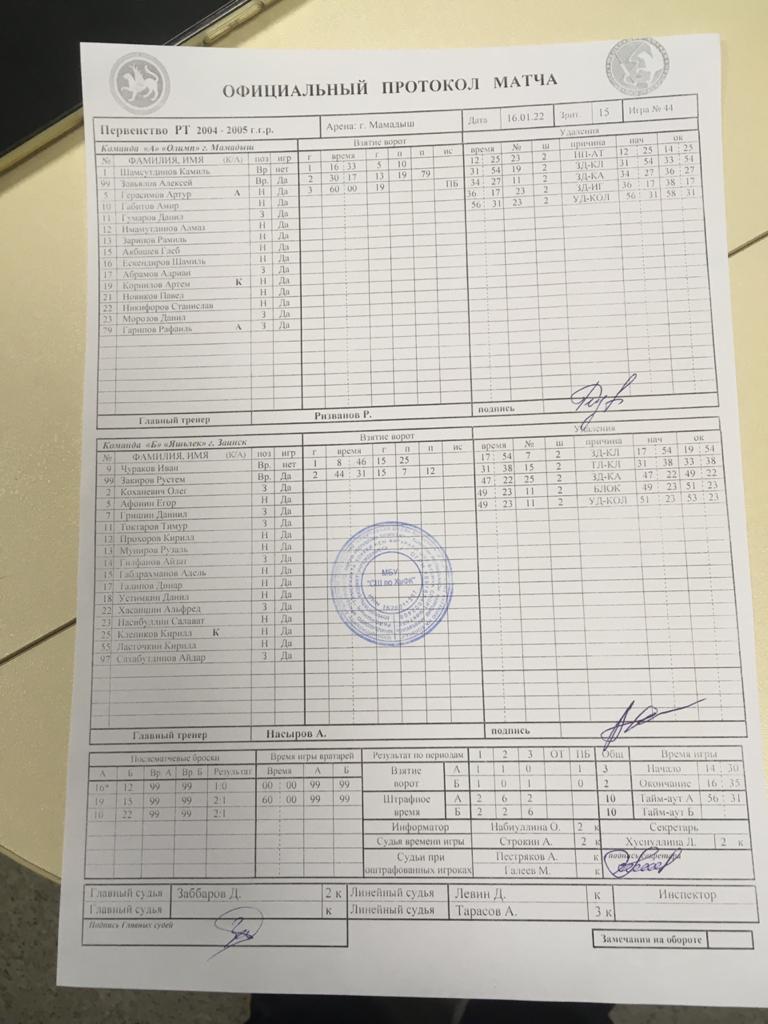 ОФИЦИАЛЬНЫЙ ПРОТОКОЛ МАТЧА
Первенство РТ 2004 - 2005 г.г.р. Арена: г. Мамадыш Дата 16.01.22 Зрит. 15 Игра № 44
Команда «А» «Олимп» г. Мамадыш Взятие ворот Удаления
№ ФАМИЛИЯ, ИМЯ (К/А) поз игр г время г п п ис время № ш причина нач ок
1 Шамсутдинов Камиль Вр нет 1 16 33 5 10 12 25 23 2 НП-АТ 12 25 14 25
99 Завьялов Алексей Вр. Да 2 30 17 13 19 79 31 54 19 2 ЗД-КЛ 31 54 33 54
5 Герасимов Артур А Н Да 3 60 00 19 ПБ 34 27 11 2 ЗД-КА 34 27 36 27
10 Габитов Амир Н Да 36 17 23 2 ЗД-ИГ 36 17 38 17
11 Гумаров Данил З Да 56 31 23 2 УД-КОЛ 56 31 58 31
12 Имамутдинов Алмаз Н Да
13 Зарипов Рамиль Н Да
15 Акбашев Глеб Н Да
16 Ескендиров Шамиль Н Да
17 Абрамов Адриан З Да
19 Корнилов Артем К Н Да
21 Новиков Павел Н Да
22 Никифоров Станислав Н Да
23 Морозов Данил З Да
79 Гарипов Рафаиль А З Да
Главный тренер Ризванов Р. подпись
Команда «Б» «Яшьлек» г. Заинск Взятие ворот Удаления
№ ФАМИЛИЯ, ИМЯ (К/А) поз игр г время г п п ис время № ш причина нач ок
9 Чураков Иван Вр. нет 1 8 46 15 25 17 54 7 2 ЗД-КЛ 17 54 19 54
99 Закиров Рустем Вр. Да 2 44 31 15 7 12 31 38 15 2 ТЛ-КЛ 31 38 33 38
2 Коханевич Олег З Да 47 22 25 2 ЗД-КА 47 22 49 22
5 Афонин Егор Н Да 49 23 11 2 БЛОК 49 23 51 23
7 Гришин Даниил З Да 49 23 11 2 УД-КОЛ 51 23 53 23
11 Токтаров Тимур З Да
12 Прохоров Кирилл Н Да
13 Муниров Рузаль Н Да
14 Гилфанов Айзат З Да
15 Габдрахманов Адель Н Да
17 Галипов Динар Н Да
18 Устимкин Данил Н Да
22 Хасаншин Альфред З Да
23 Насибуллин Салават Н Да
25 Клепиков Кирилл К Н Да
55 Ласточкин Кирилл Н Да
97 Сахабутдинов Айдар З Да
МБУ
Главный тренер Насыров А. подпись
Послематчевые броски Время игры вратарей Результат по периодам 1 2 3 ОТ ПБ Общ Время игры
А Б Вр. А Вр. Б Результат Время А Б Взятие ворот А 1 1 0 1 3 Начало 14 30
16* 12 99 99 1:0 00 00 99 99 Б 1 0 1 0 2 Окончание 16 35
19 15 99 99 2:1 60 00 99 99 Штрафное время А 2 6 2 10 Тайм-аут А 56 31
10 22 99 99 2:1 Б 2 2 6 10 Тайм-аут Б
Информатор Набиуллина О. 2 к Секретарь
Судья времени игры Строкин А. 2 к Хуснуллина Л. 2 к
Судьи при Пестряков А. к подпись секретаря
оштрафованных игроках Галеев М. к
Главный судья Заббаров Д. 2 к Линейный судья Левин Д. к Инспектор
Главный судья к Линейный судья Тарасов А. 3 к
Подпись Главных судей
Замечания на обороте